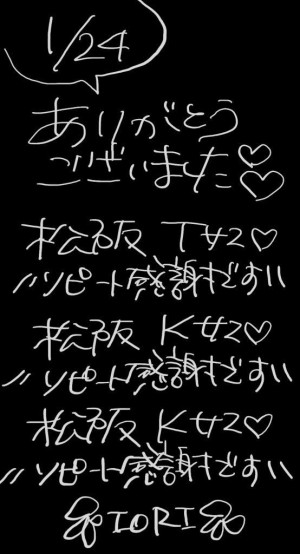 1/24
ありがとう
ございました♡♡
松阪 T様♡
リピート感謝です!!
松阪 K様♡
リピート感謝です!!
松阪 K様♡
リピート感謝です!!
IORI